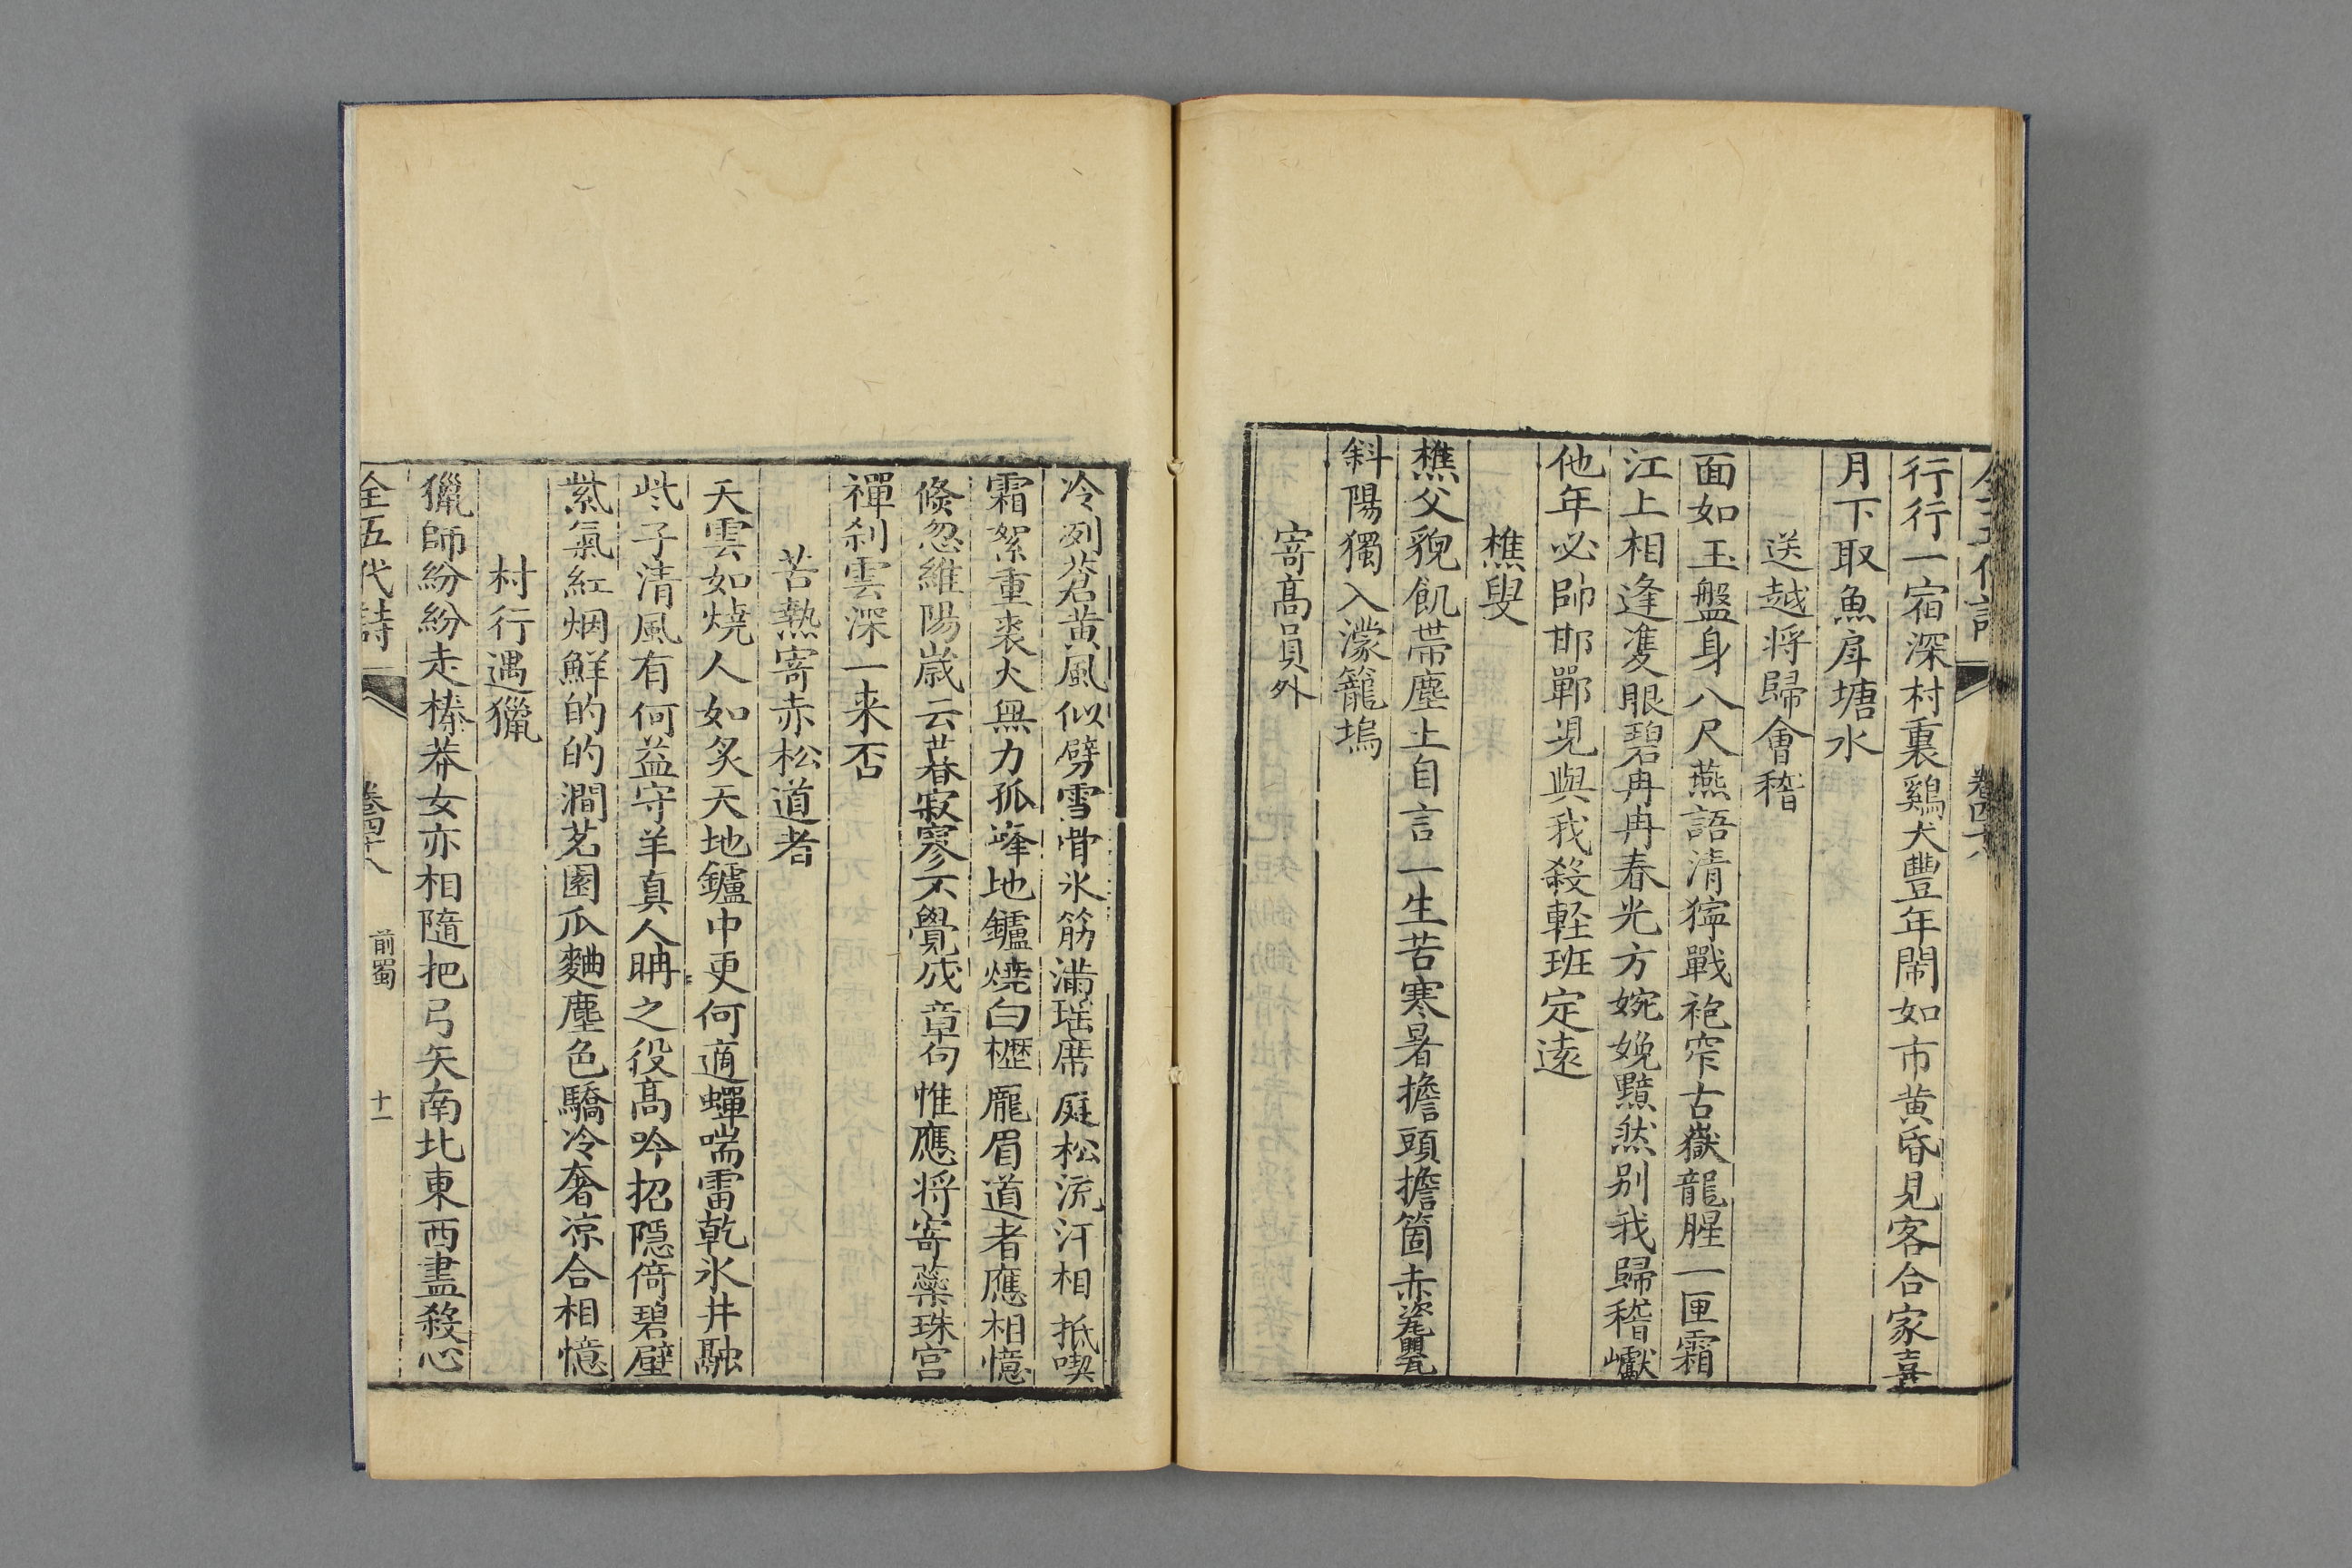 行行一宿深村裏鷄犬豐年閙如市黄昏見客合家喜
月下取魚戽塘水
送越将歸會稽
面如玉盤身八尺燕語清獰戰袍窄古嶽龍腥一匣霜
江上相逢䨇眼碧冉冉春光方婉娩黯然别我歸稽巘
他年必帥邯鄲児與我殺輕班定遠
樵叟
樵父貌飢帶塵土自言一生苦寒暑擔頭擔箇赤瓷甖
斜陽獨入濛籠塢
寄髙員外
冷列蒼黄風似劈雪骨氷筋滿瑶席庭松流汗相抵喫
霜絮重裘火無力孤峰地鑪燒白櫪龐眉道者應相憶
倐忽維陽歳云暮寂寥不覺成章句惟應将寄蘂珠宫
禪刹雲深一来否
苦熱寄赤松道者
天雲如燒人如炙天地鑪中更何適蟬喘雷乾氷井融
此子清風有何益守羊真人聃之役髙吟招隱倚碧壁
紫氣紅烟鮮的的澗茗園瓜麴塵色驕冷奢凉合相憶
村行遇獵
獵師紛紛走榛莽女亦相隨把弓矢南北東西盡殺心
全五代詩 卷四十八 前蜀 十一